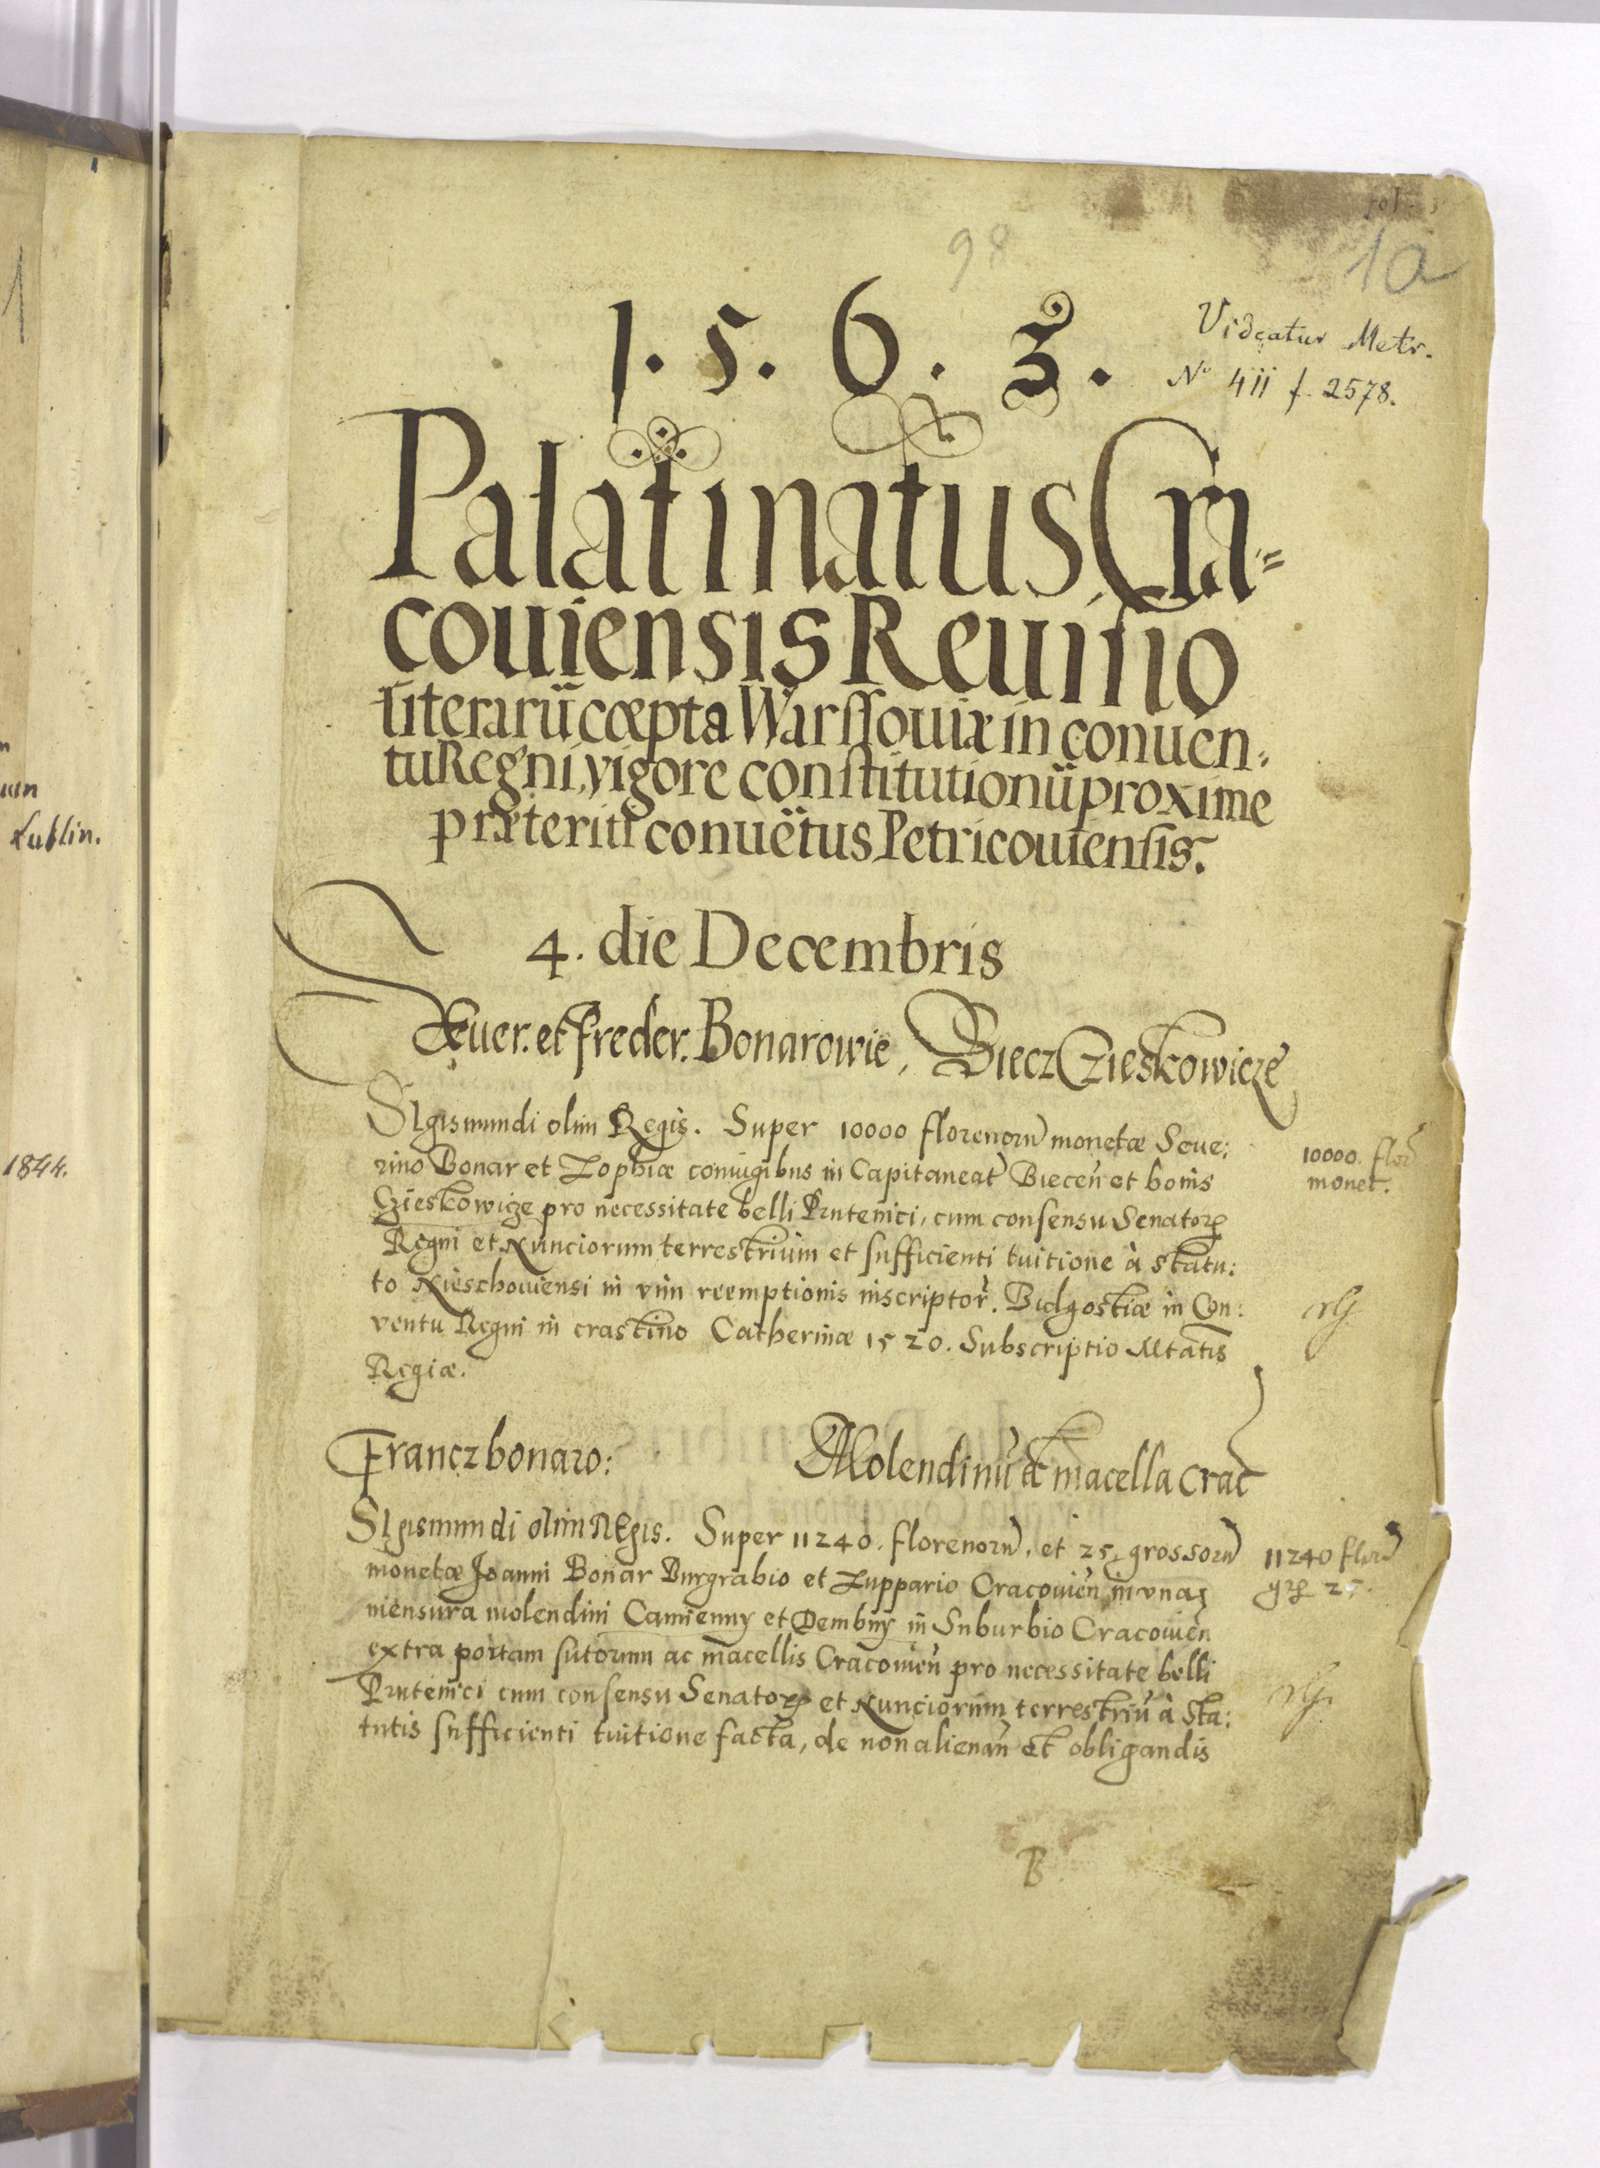 1
Lublin.
1844.
98
1a
1.5.6.3.
Videatur Metr.
No 4ii f. 2578.
Palatinatus Cra=
couiensis Reuisio
literarū cœpta Warssouiæ in conuen:
tu Regni, vigore constitutionū proxime
præteriti conuētus Petricouiensis.
4. die Decembris
Seuer. et Freder. Bonarowie, Biecz Czieskowicze
SIgismundi olim Regis. Super 10000 florenorū monetæ Seue:
rino Bonar et Zophiæ coniugibus in Capitaneat Biecen et bonis
Czieskowicze pro necessitate belli Prutenici, cum consensu Senatorꝝ
Regni et Nunciorum terrestrium et sufficienti tuitione à statu:
to Nieschouiensi in vim reemptionis inscriptor. Bidgostiæ in Con:
ventu Regni in crastino Catherinæ 1520. Subscriptio Mtatis
Regiæ.
10000. flor
monet.
Franczbonaro: Molendinū & macella Crac
SIgismundi olim REgis. Super 11240. florenorū, et 25, grossorū
monetæ Joanni Bonar Burgrabio et Zuppario Cracouien in vna
mensura molendini Camienny et Dembny in Suburbio Cracouien
extra portam sutorum ac macellis Cracouien pro necessitate belli
Prutenici cum consensu Senatorꝝ et Nunciorum terrestriū à sta:
tutis sufficienti tuitione facta, de non alienan et obligandis
11240 flor
grꝝ 25.
B